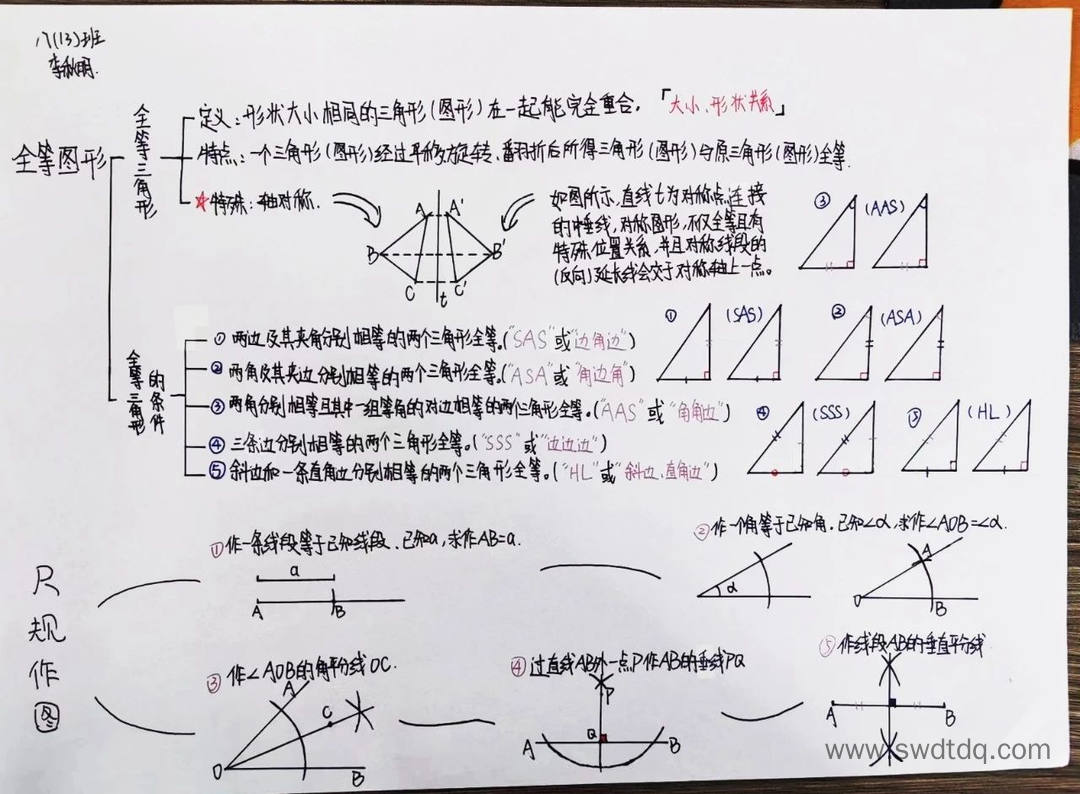 八(13)班
李秋明.
全等图形
全等三角形
定义:形状大小相同的三角形(图形)在一起能完全重合,「大小、形状关系」
特点:一个三角形(图形)经过平移、旋转、翻折后所得三角形(图形)与原三角形(图形)全等.
☆特殊:轴对称.
A A'
B B'
C C'
t
如图所示,直线t为对称点连接
的中垂线,对称图形,不仅全等且有
特殊位置关系,并且对称线段的
(反向)延长线会交于对称轴上一点。
③ (AAS)
① (SAS) ② (ASA)
④ (SSS) ⑤ (HL)
全等三角形的条件
① 两边及其夹角分别相等的两个三角形全等.("SAS"或"边角边")
② 两角及其夹边分别相等的两个三角形全等.("ASA"或"角边角")
③ 两角分别相等且其中一组等角的对边相等的两个三角形全等.("AAS"或"角角边")
④ 三条边分别相等的两个三角形全等.("SSS"或"边边边")
⑤ 斜边和一条直角边分别相等的两个三角形全等.("HL"或"斜边、直角边")
尺规作图
① 作一条线段等于已知线段.已知a,求作AB=a.
a
A B
② 作一个角等于已知角.已知∠α,求作∠AOB=∠α.
α
O A B
③ 作∠AOB的角平分线OC.
A
C
O B
④ 过直线AB外一点P作AB的垂线PQ
P
Q
A B
⑤ 作线段AB的垂直平分线
A B
www.swdtdq.com